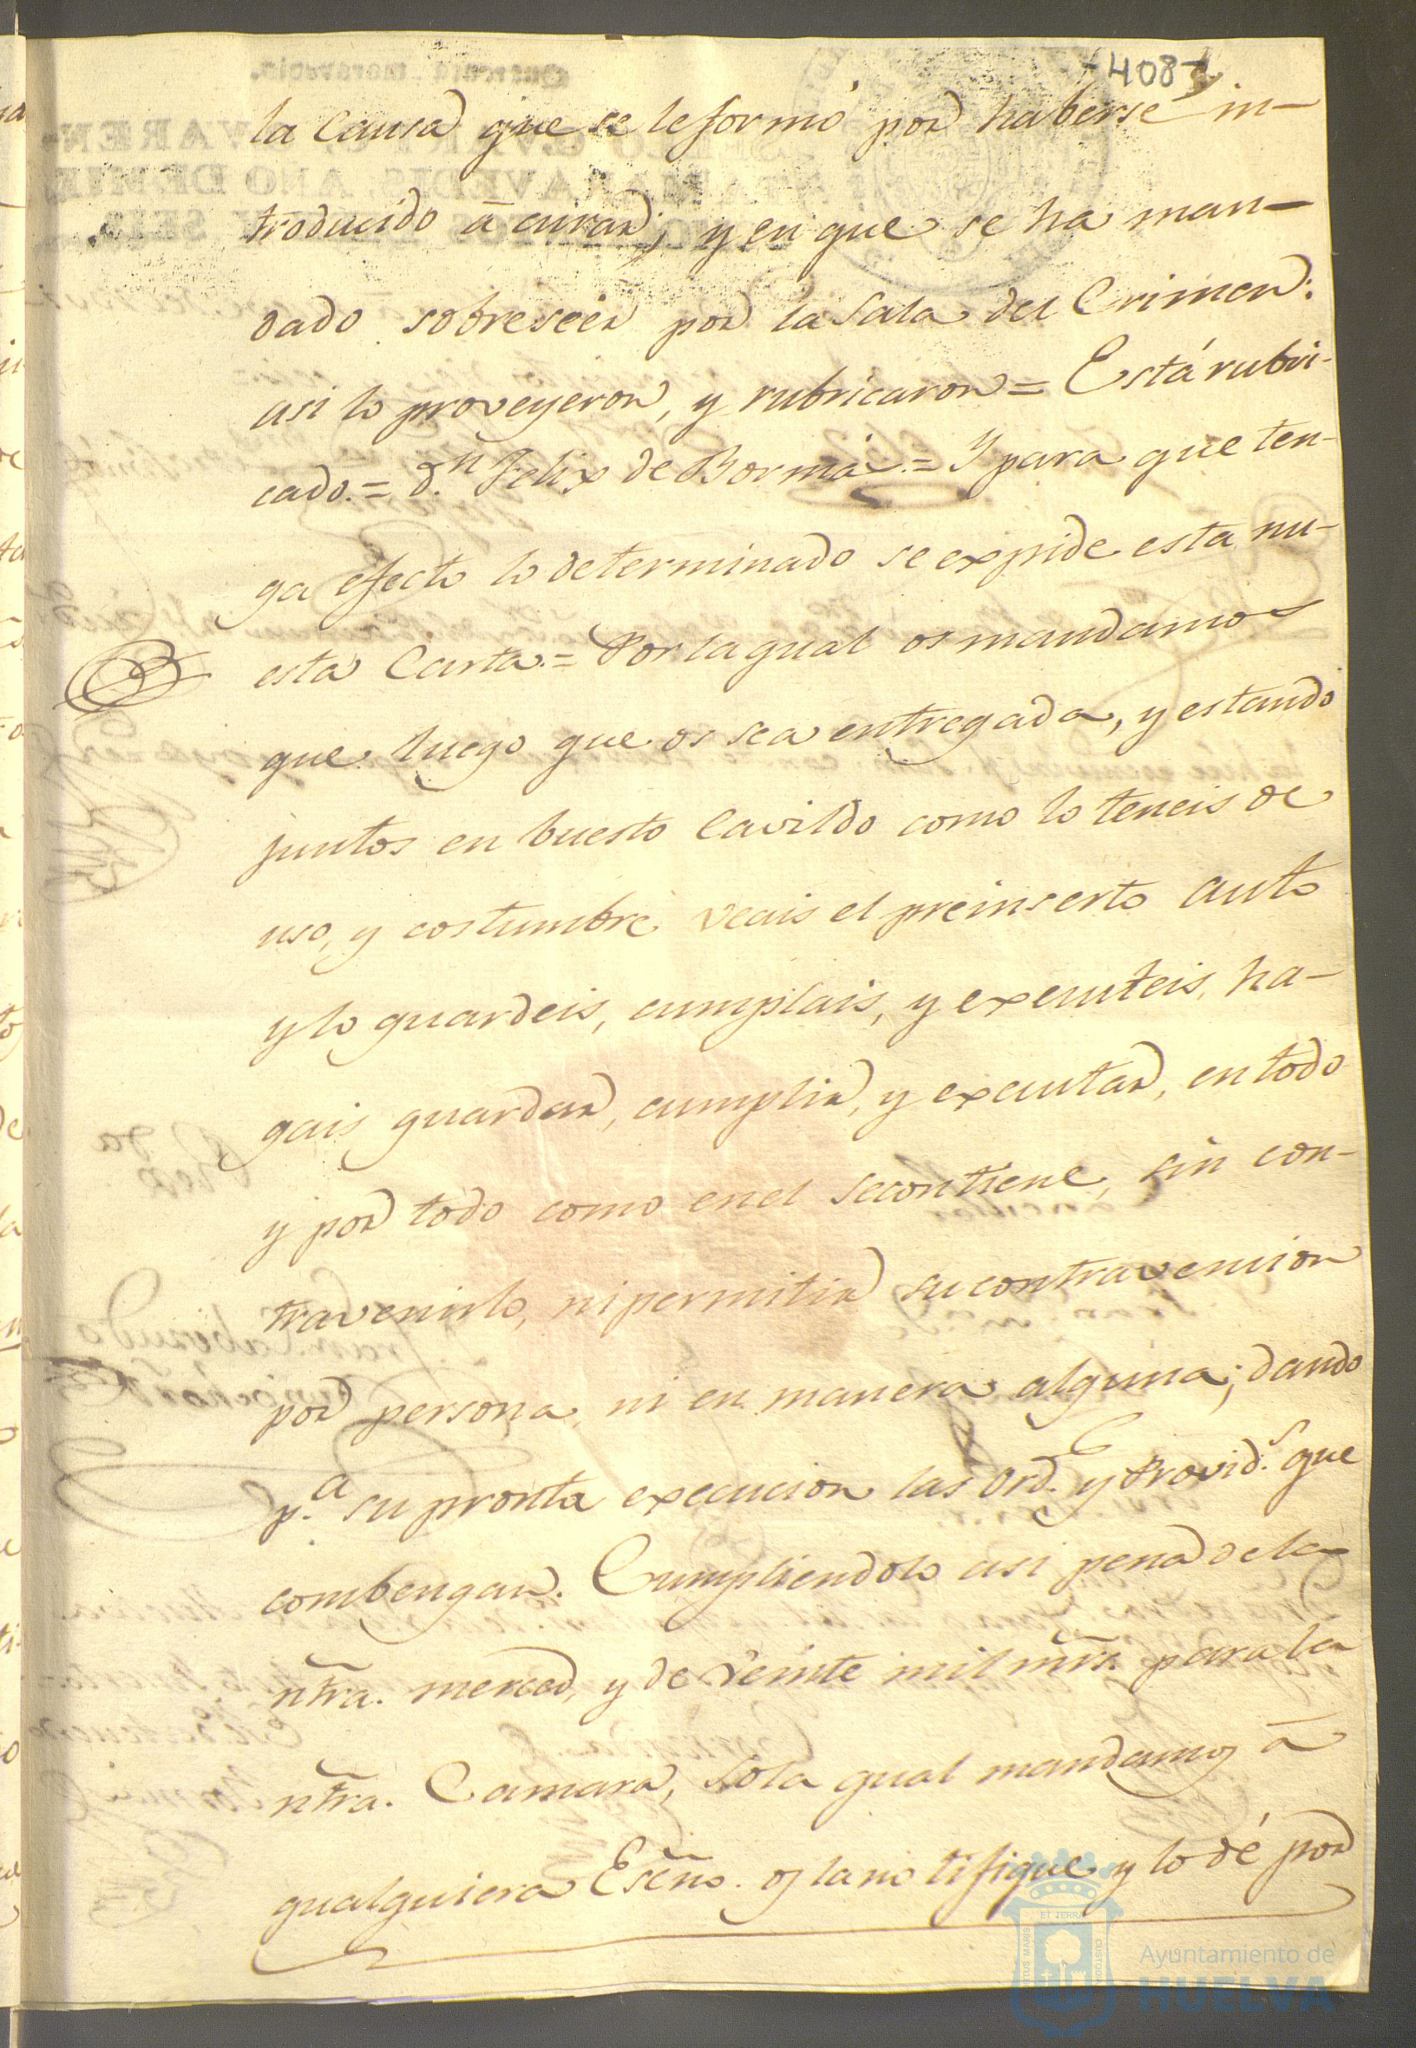 408
la Causa que se le formó por haberse in-
troducido à curar; y en que se ha man-
dado sobreseer por la Sala del Crimen:
asi lo proveyeron, y rubricaron = Está rubri-
cado. = D.n Felix de Bormá. = Y para que ten-
ga efecto lo determinado se expide esta nu-
esta Carta. = Por la qual os mandamos
que luego que os sea entregada, y estando
juntos en buesto Cavildo como lo teneis de
uso, y costumbre veais el preinserto auto
y lo guardeis, cumplais, y executeis, ha-
gais guardar, cumplir, y executar, en todo
y por todo como en el se contiene, sin con-
travenirlo, ni permitir su contravencion
por persona, ni en manera alguna; dando
p.a su pronta execucion las Ord.s y Provid.s que
combengan. Cumpliendolo asi pena de la
ñtra. merced, y de veinte mil mñrs. para la
ñtra. Camara, so la qual mandamos à
qualquiera Esc̃no. os la notifique, y lo dé por
Ayuntamiento de
HUELVA